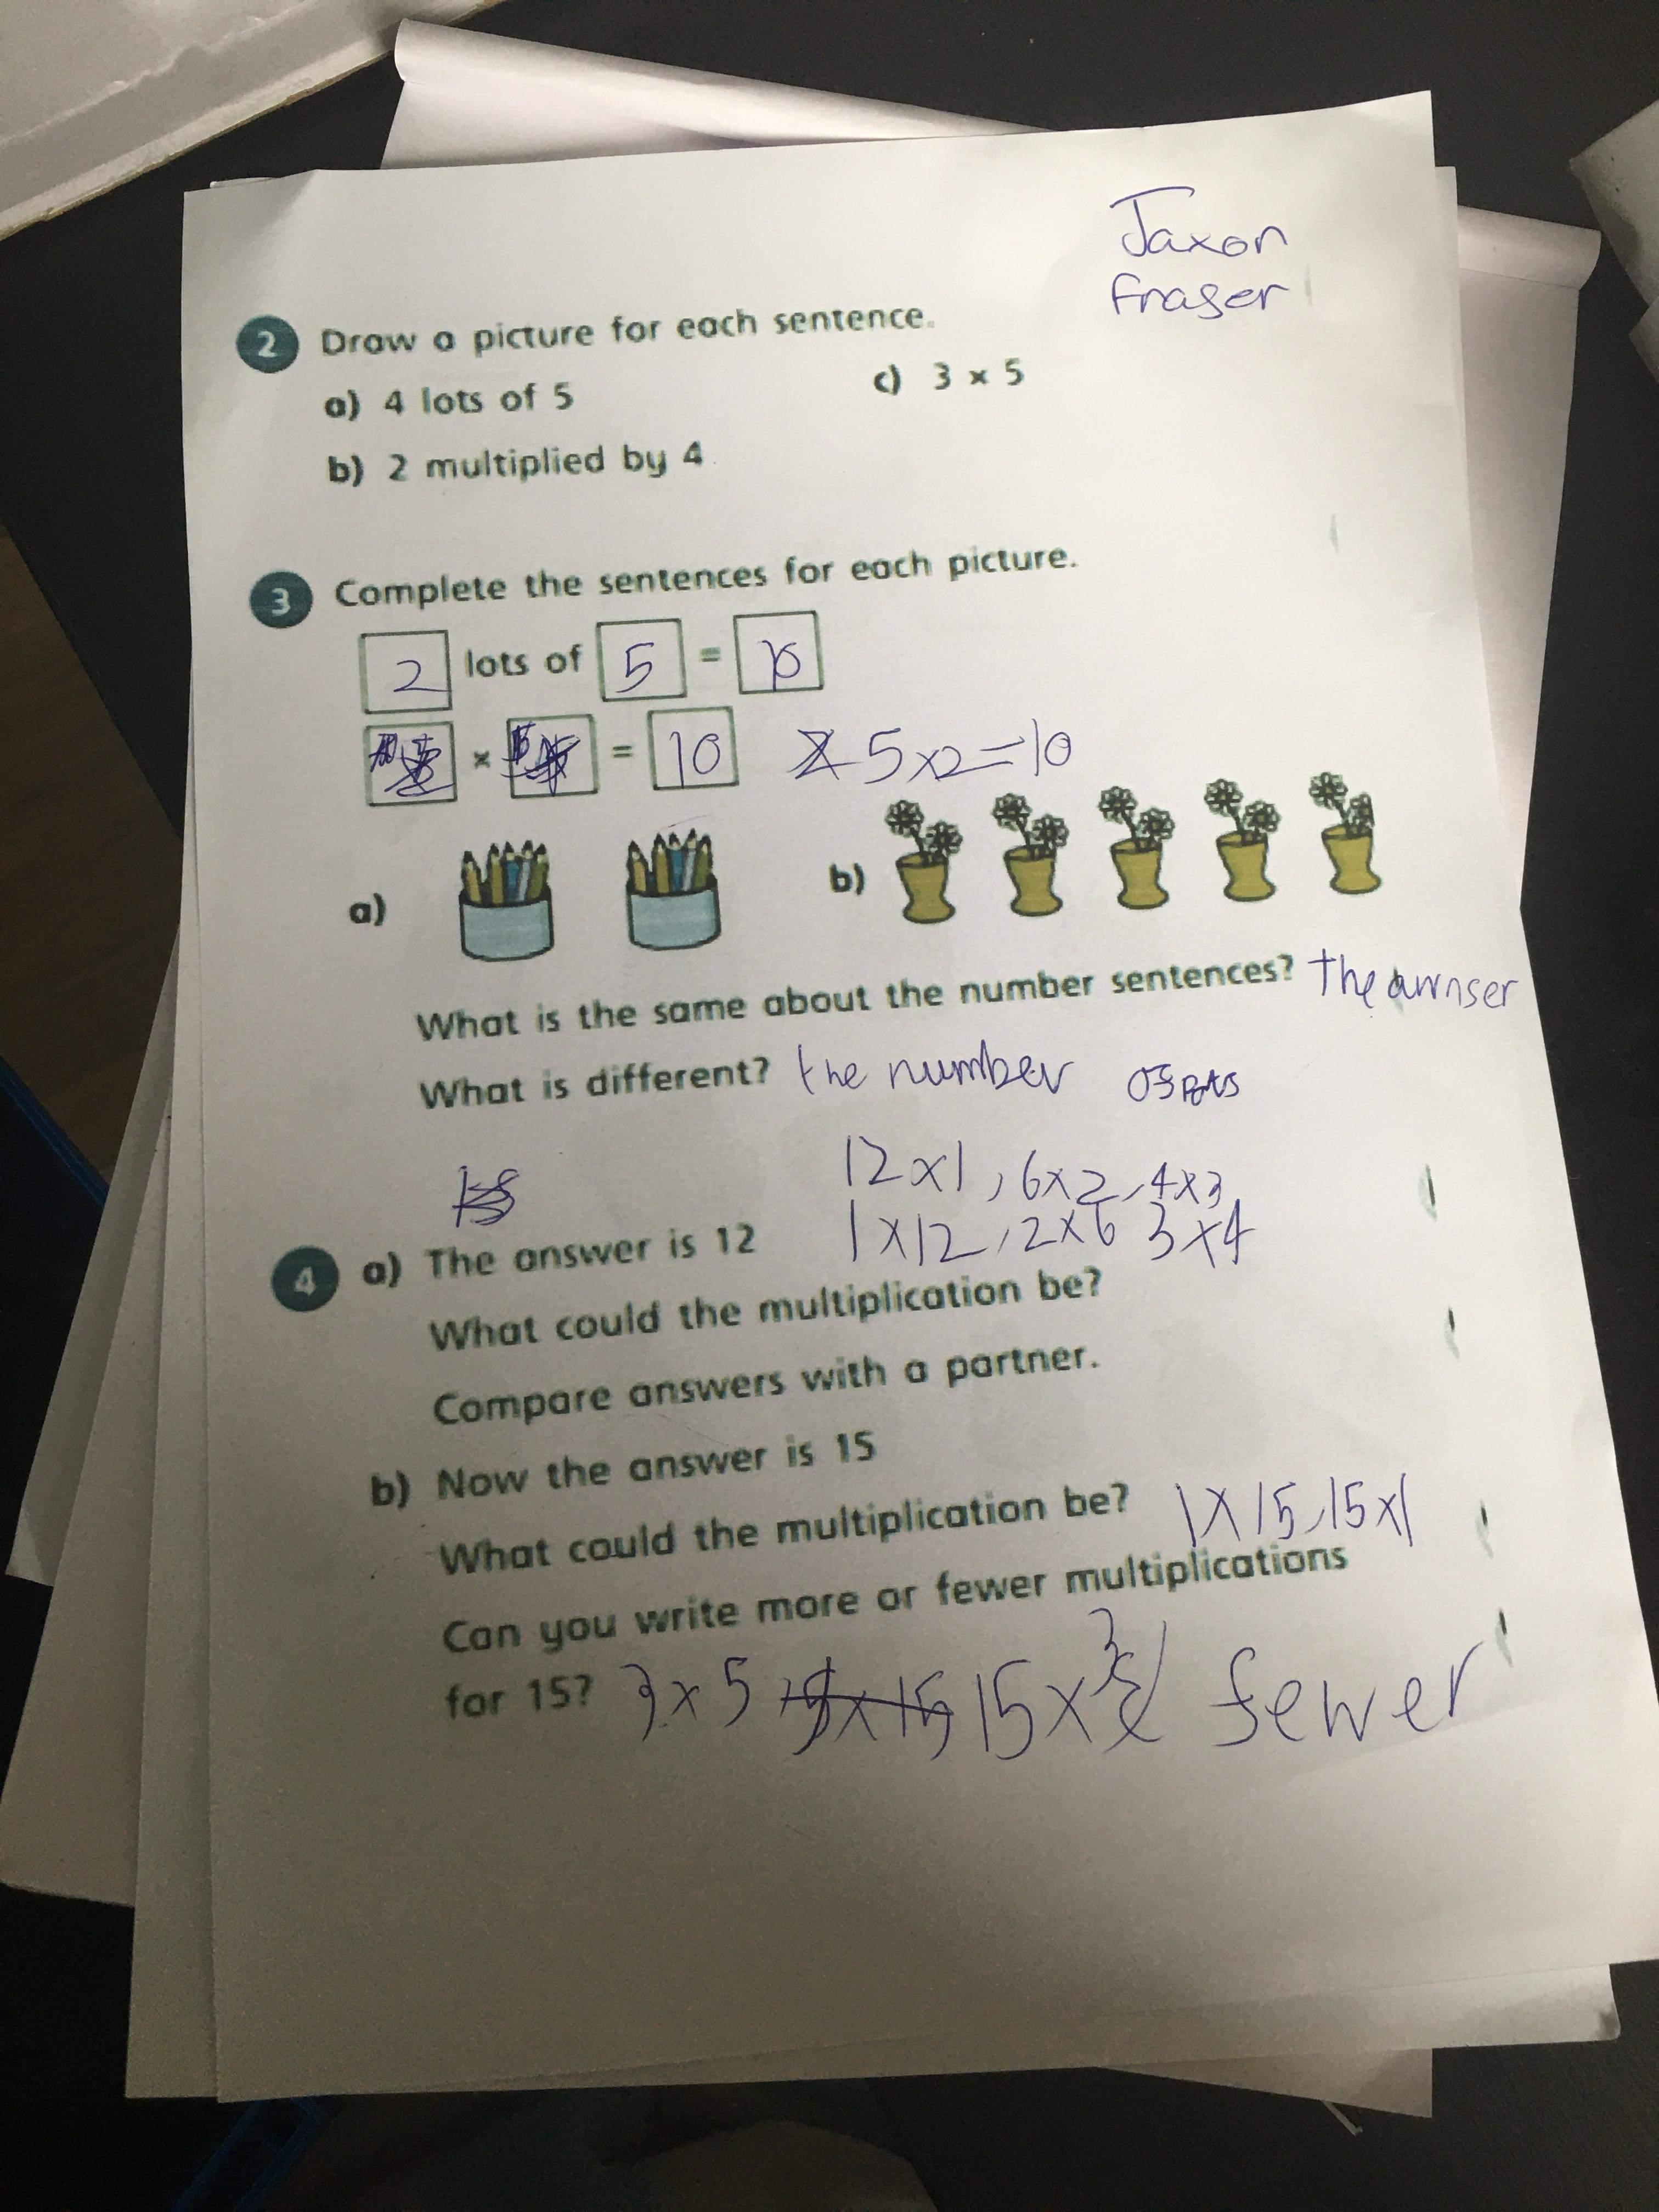 Jaxon
Fraser
2 Draw a picture for each sentence.
a) 4 lots of 5
c) 3 x 5
b) 2 multiplied by 4
3 Complete the sentences for each picture.
2 lots of 5 = 10
x = 10 5x2=10
a)
b)
What is the same about the number sentences? the awnser
What is different? the number of pots
12x1, 6x2, 4x3
1x12, 2x6 3x4
4 a) The answer is 12
What could the multiplication be?
Compare answers with a partner.
b) Now the answer is 15
What could the multiplication be? 1x15, 15x1
Can you write more or fewer multiplications
for 15? 3x5 15x fewer